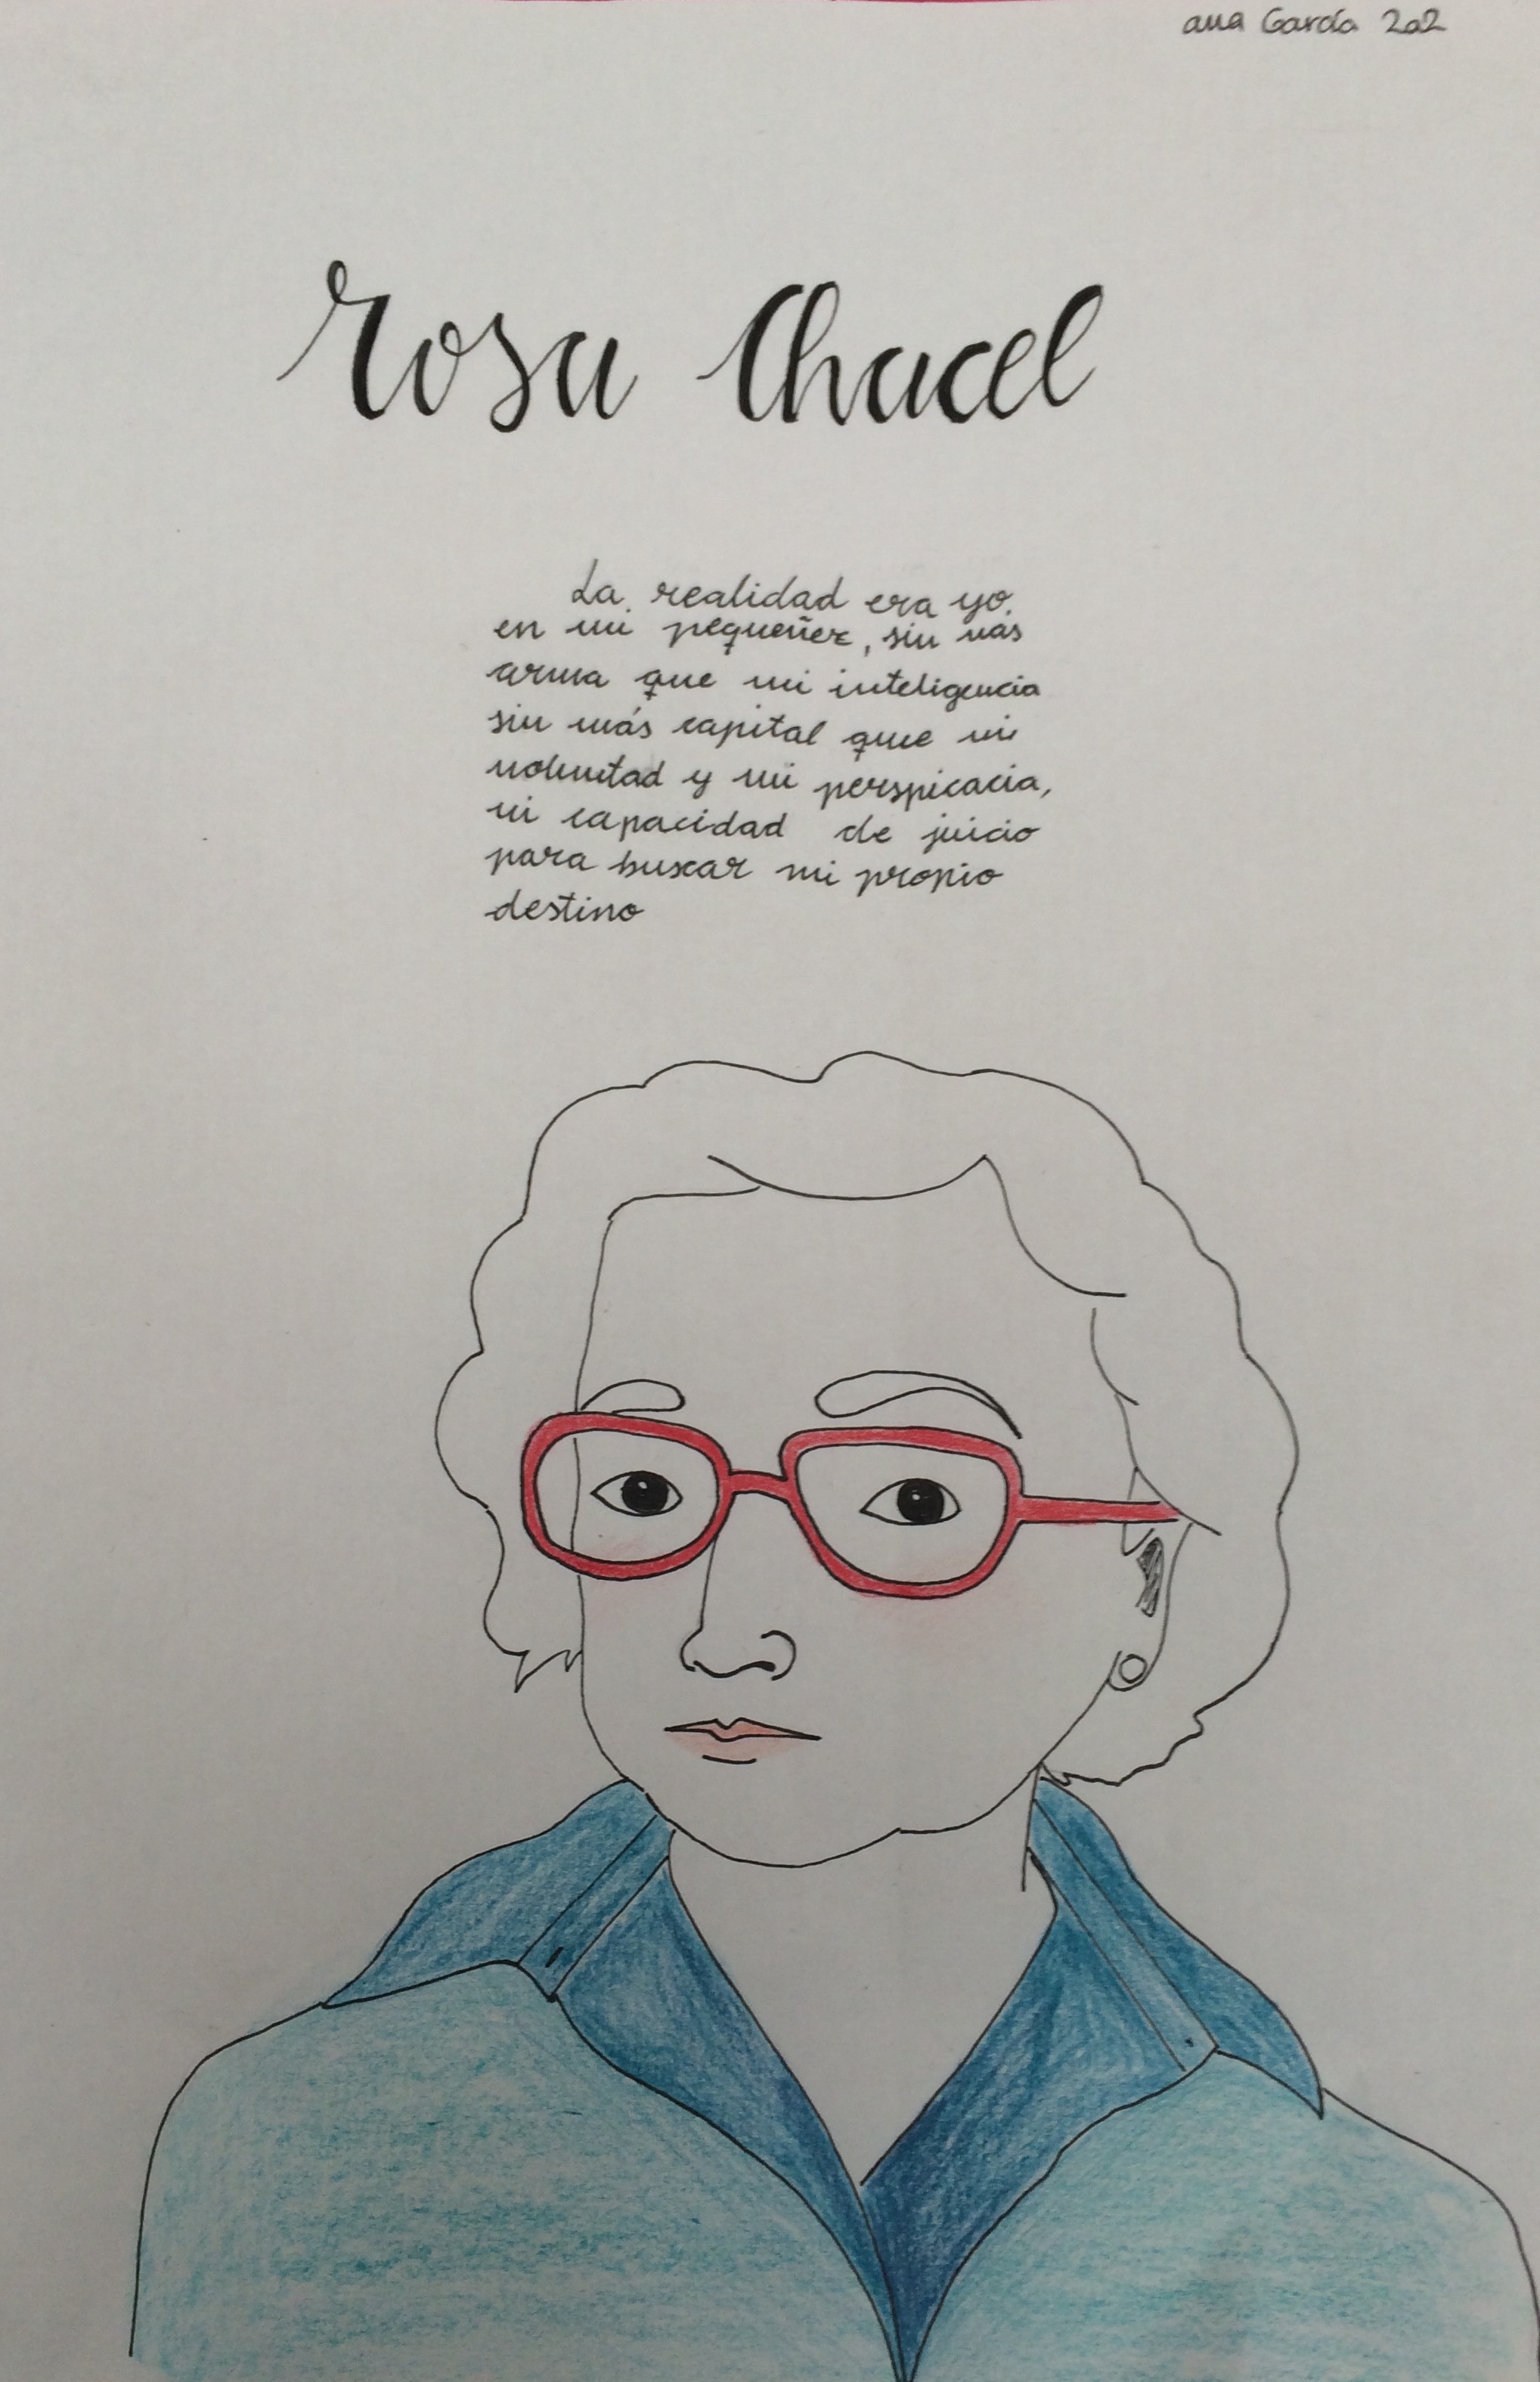 ana García 2a2
Rosa Chacel
La realidad era yo
en mi pequeñez, sin más
arma que mi inteligencia
sin más capital que mi
voluntad y mi perspicacia,
mi capacidad de juicio
para buscar mi propio
destino